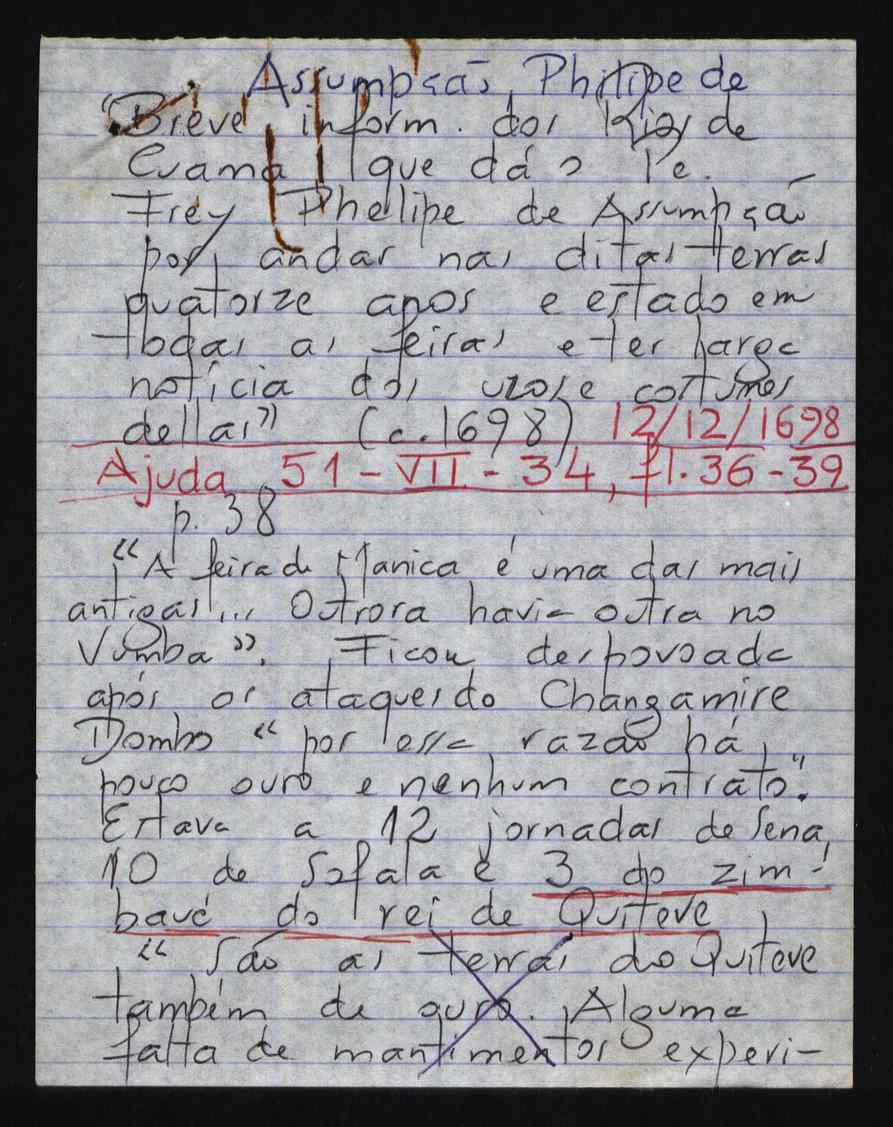 Assumpção, Philipe de
"Breve inform. dos Rios de
Cuama que dá o Pe.
Frey Phelipe de Assumpção
por andar nas ditas terras
quatorze anos e estado em
todas as feiras e ter larga
notícia dos uzos e costumes
dellas" (c. 1698) 12/12/1698
Ajuda 51-VII-34, fl. 36-39
p. 38
"A feira de Manica é uma das mais
antigas... Outrora havia outra no
Vumba". Ficou despovoada
após os ataques do Changamire
Dombo "por essa razaõ há
pouco ouro e nenhum contrato".
Estava a 12 jornadas de Sena,
10 de Sofala e 3 do zim-
baué do rei de Quiteve
"São as terras do Quiteve
também de ouro. Alguma
falta de mantimentos experi-